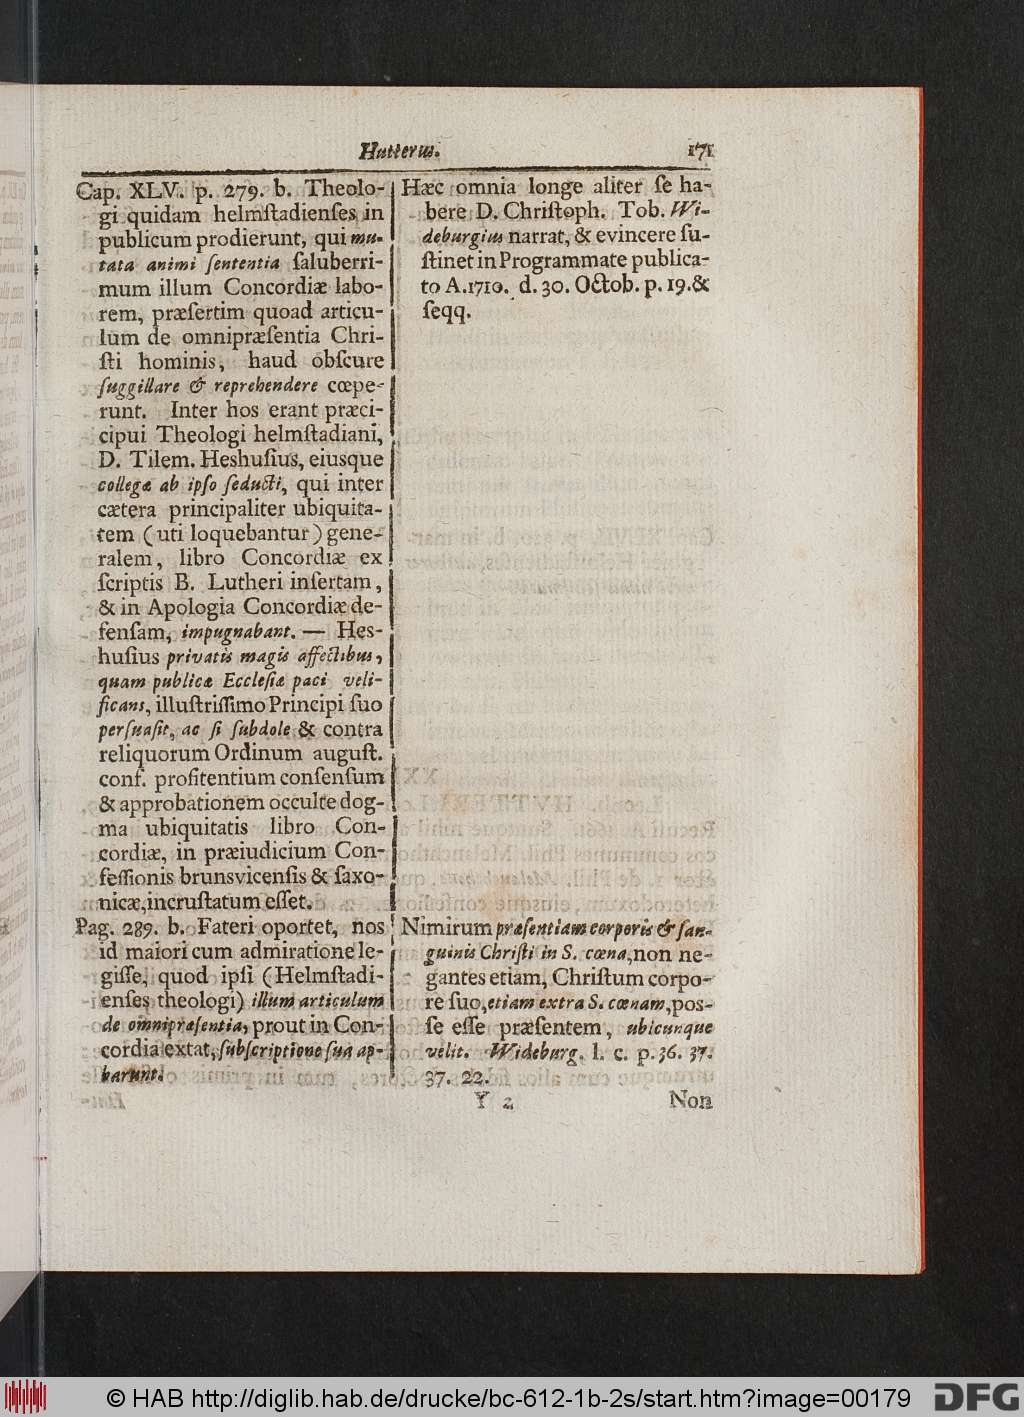 Hutterus. 171
Cap. XLV. p. 279. b. Theolo-
gi quidam helmſtadienſes in
publicum prodierunt, qui mu-
tata animi ſententia ſaluberri-
mum illum Concordiæ labo-
rem, præſertim quoad articu-
lum de omnipræſentia Chri-
ſti hominis, haud obſcure
ſuggillare & reprehendere cœpe-
runt. Inter hos erant præci-
cipui Theologi helmſtadiani,
D. Tilem. Heshuſius, eiusque
collegæ ab ipſo ſeducti, qui inter
cætera principaliter ubiquita-
tem (uti loquebantur) gene-
ralem, libro Concordiæ ex
ſcriptis B. Lutheri inſertam,
& in Apologia Concordiæ de-
fenſam, impugnabant. — Hes-
huſius privatis magis affectibus,
quam publicæ Eccleſiæ paci veli-
ficans, illuſtriſſimo Principi ſuo
perſuaſit, ac ſi ſubdole & contra
reliquorum Ordinum auguſt.
conf. profitentium conſenſum
& approbationem occulte dog-
ma ubiquitatis libro Con-
cordiæ, in præiudicium Con-
feſſionis brunsvicenſis & ſaxo-
nicæ, incruſtatum eſſet.
Pag. 289. b. Fateri oportet, nos
id maiori cum admiratione le-
giſſe, quod ipſi (Helmſtadi-
enſes theologi) illum articulum
de omnipræſentia, prout in Con-
cordia extat, ſubſcriptione ſua ap-
barunt.
Hæc omnia longe aliter ſe ha-
bere D. Chriſtoph. Tob. Wi-
deburgius narrat, & evincere ſu-
ſtinet in Programmate publica-
to A. 1710. d. 30. Octob. p. 19. &
ſeqq.
Nimirum præſentiam corporis & ſan-
guinis Chriſti in S. cœna, non ne-
gantes etiam, Chriſtum corpo-
re ſuo, etiam extra S. cœnam, poſ-
ſe eſſe præſentem, ubicunque
velit. Wideburg. l. c. p. 36. 37.
37. 22.
Y 2 Non
© HAB http://diglib.hab.de/drucke/bc-612-1b-2s/start.htm?image=00179 DFG